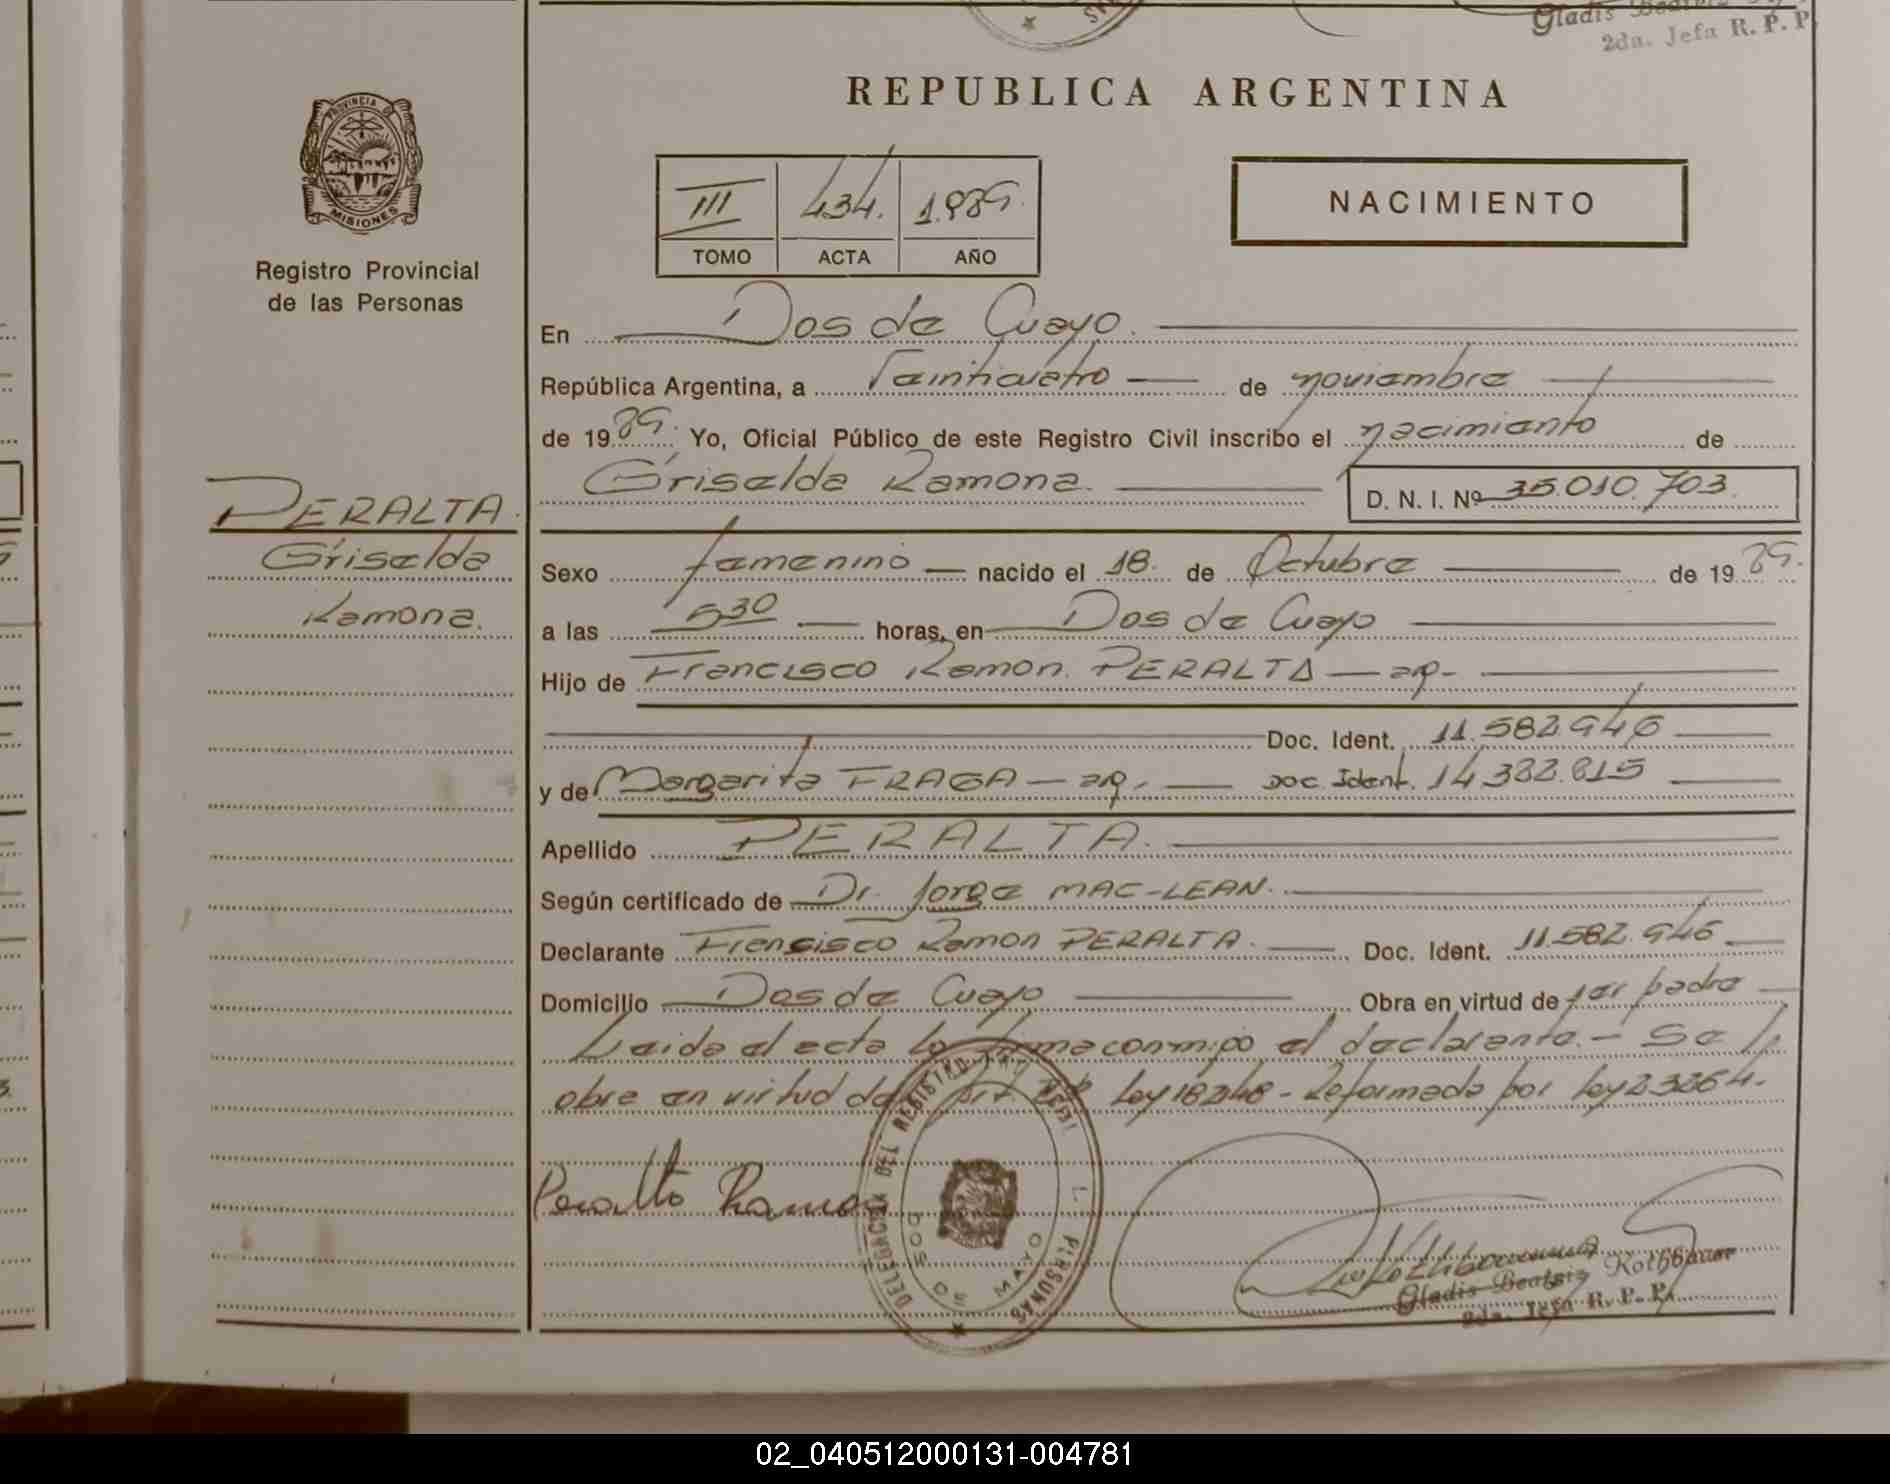 Gladis
2da. Jefa R. P. P
REPUBLICA ARGENTINA
PROVINCIA DE
MISIONES
Registro Provincial
de las Personas
III 434. 1.989.
TOMO ACTA AÑO
NACIMIENTO
En Dos de Mayo.
República Argentina, a Veinticuatro de noviembre
de 19 89. Yo, Oficial Público de este Registro Civil inscribo el nacimiento de
Griselda Ramona.
D. N. I. Nº 35.010.703.
PERALTA.
Griselda
Ramona.
Sexo femenino nacido el 18. de Octubre de 19 89.
a las 5,30 horas, en Dos de Mayo
Hijo de Francisco Ramon PERALTA — arg-
Doc. Ident. 11.582.946
y de Margarita FRAGA — arg. — Doc. Ident. 14.382.815
Apellido PERALTA.
Según certificado de Dr. Jorge MAC-LEAN.
Declarante Francisco Ramon PERALTA. Doc. Ident. 11.582.946
Domicilio Dos de Mayo Obra en virtud de ser padre
Leida el acta la firma conmigo el declarante. - Se
obre en virtud de Ley 18248 - Reformada por Ley 23264.
Peralta Ramon
DELEGACION DEL REGISTRO PERSONAS
DOS DE MAYO
Gladis Beatriz Rothbauer
2da. Jefa R. P. P.
02_040512000131-004781